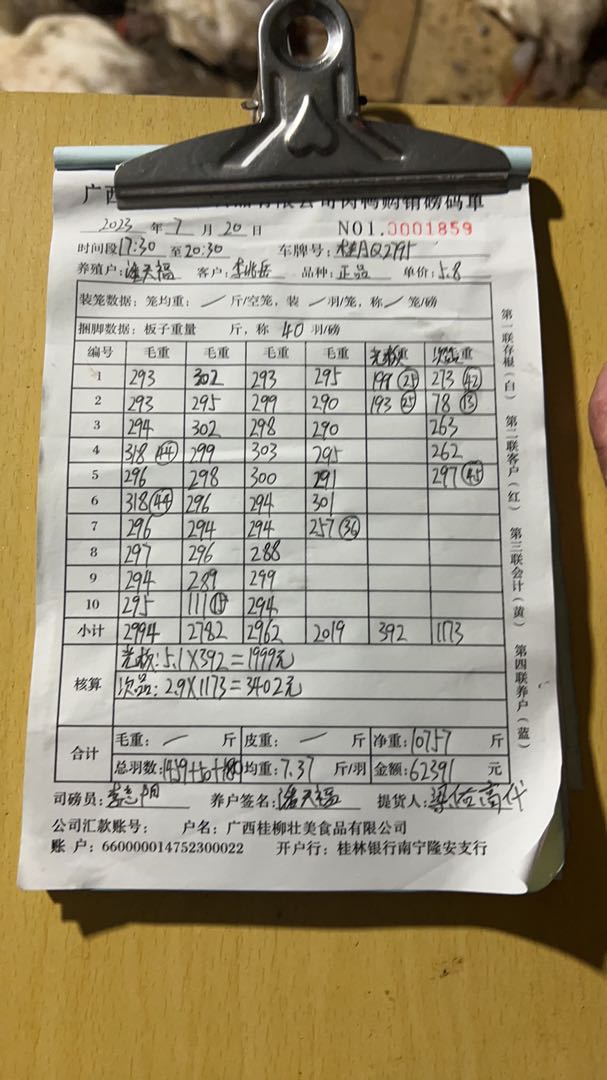 广西 有限公司肉鸭购销磅码单
2023 年 7 月 20 日 NO1.0001859
时间段17:30 至20:30 车牌号:桂AQ2795
养殖户:潘天福 客户:李兆岳 品种:正品 单价:5.8
装笼数据:笼均重:/斤/空笼,装/羽/笼,称/笼/磅
捆脚数据:板子重量 斤,称 40 羽/磅
编号 毛重 毛重 毛重 毛重 重 次品
1 293 302 293 295 199 (25) 273 (42)
2 293 295 299 290 193 (25) 78 (13)
3 294 302 298 290 263
4 318 (44) 299 303 295 262
5 296 298 300 291 297 (45)
6 318 (44) 296 294 301
7 296 294 294 257 (36)
8 297 296 288
9 294 289 299
10 295 111 (15) 294
小计 2994 2782 2962 2019 392 1173
核算
:5.1×392=1999元
次品:2.9×1173=3402元
合计
毛重:/ 斤 皮重:/ 斤 净重:10757 斤
总羽数:1459+50+180 均重:7.37 斤/羽 金额:62391 元
司磅员: 养户签名:潘天福 提货人:
公司汇款账号: 户名:广西桂柳壮美食品有限公司
账 户:660000014752300022 开户行:桂林银行南宁隆安支行
第一联存根(白) 第二联客户(红) 第三联会计(黄) 第四联养户(蓝)